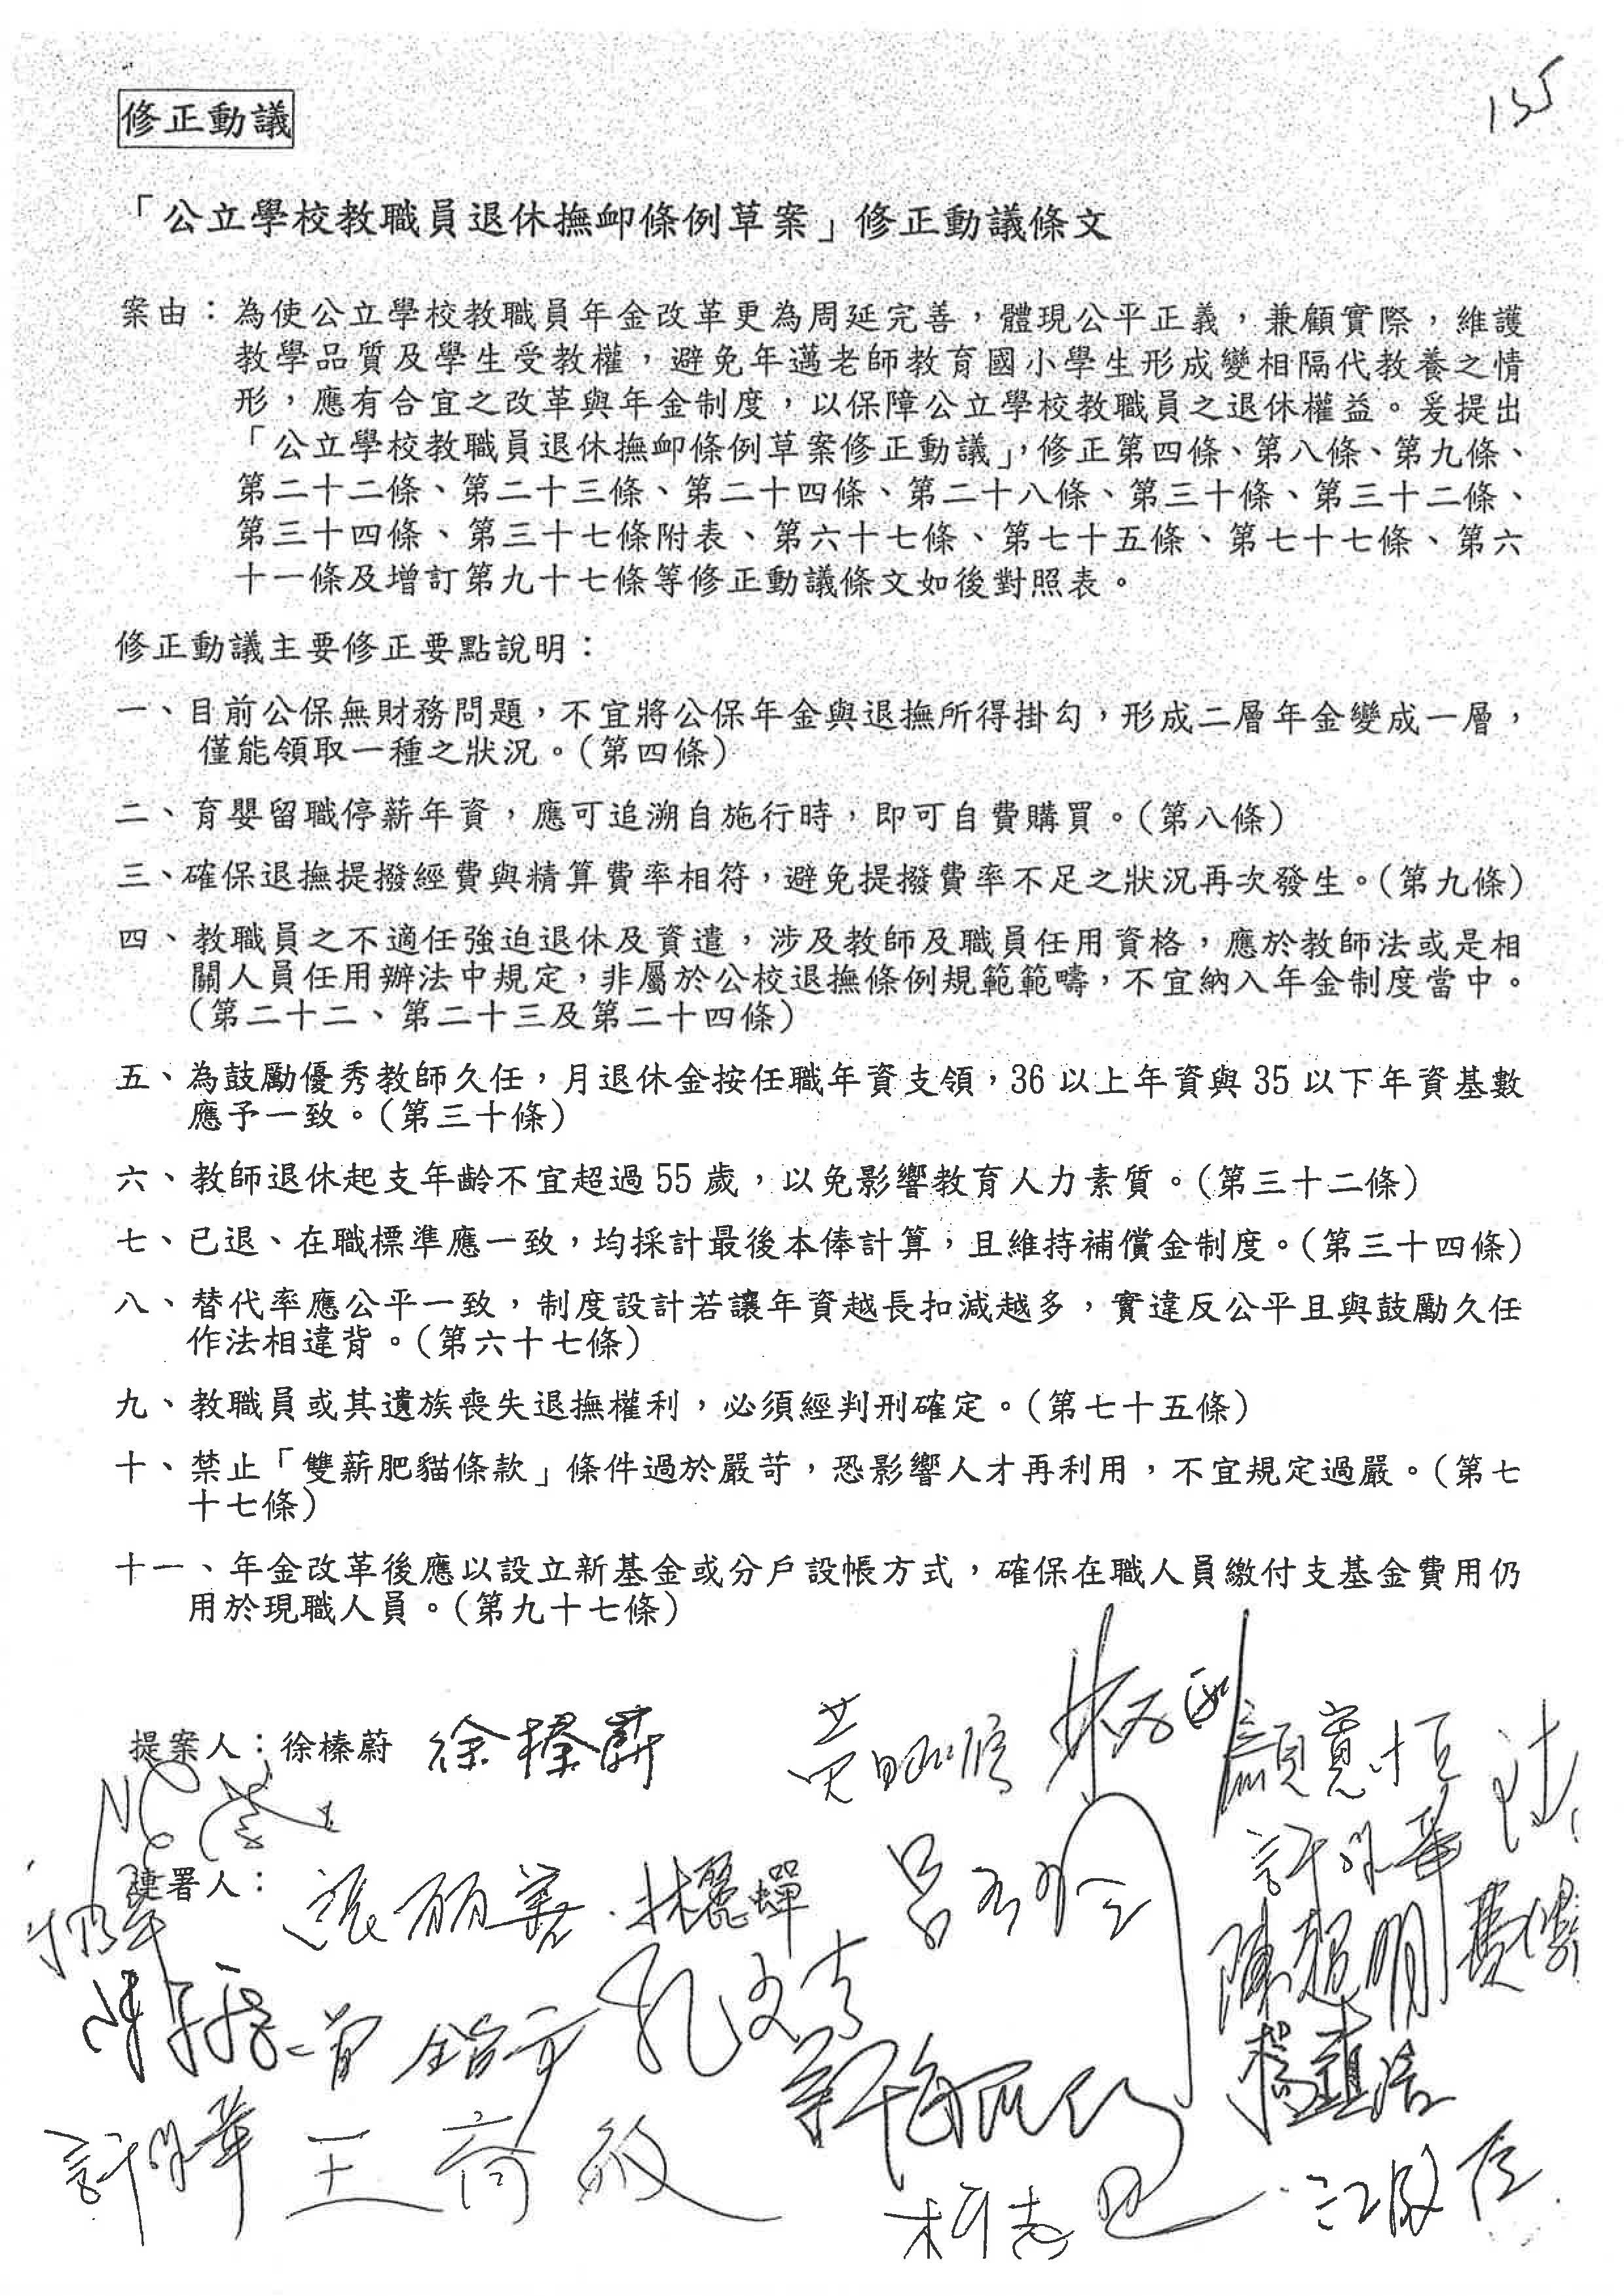 135
修正動議
「公立學校教職員退休撫卹條例草案」修正動議條文
案由：為使公立學校教職員年金改革更為周延完善，體現公平正義，兼顧實際，維護
教學品質及學生受教權，避免年邁老師教育國小學生形成變相隔代教養之情
形，應有合宜之改革與年金制度，以保障公立學校教職員之退休權益。爰提出
「公立學校教職員退休撫卹條例草案修正動議」，修正第四條、第八條、第九條、
第二十二條、第二十三條、第二十四條、第二十八條、第三十條、第三十二條、
第三十四條、第三十七條附表、第六十七條、第七十五條、第七十七條、第六
十一條及增訂第九十七條等修正動議條文如後對照表。
修正動議主要修正要點說明：
一、目前公保無財務問題，不宜將公保年金與退撫所得掛勾，形成二層年金變成一層，
僅能領取一種之狀況。（第四條）
二、育嬰留職停薪年資，應可追溯自施行時，即可自費購買。（第八條）
三、確保退撫提撥經費與精算費率相符，避免提撥費率不足之狀況再次發生。（第九條）
四、教職員之不適任強迫退休及資遣，涉及教師及職員任用資格，應於教師法或是相
關人員任用辦法中規定，非屬於公校退撫條例規範範疇，不宜納入年金制度當中。
（第二十二、第二十三及第二十四條）
五、為鼓勵優秀教師久任，月退休金按任職年資支領，36 以上年資與 35 以下年資基數
應予一致。（第三十條）
六、教師退休起支年齡不宜超過 55 歲，以免影響教育人力素質。（第三十二條）
七、已退、在職標準應一致，均採計最後本俸計算，且維持補償金制度。（第三十四條）
八、替代率應公平一致，制度設計若讓年資越長扣減越多，實違反公平且與鼓勵久任
作法相違背。（第六十七條）
九、教職員或其遺族喪失退撫權利，必須經判刑確定。（第七十五條）
十、禁止「雙薪肥貓條款」條件過於嚴苛，恐影響人才再利用，不宜規定過嚴。（第七
十七條）
十一、年金改革後應以設立新基金或分戶設帳方式，確保在職人員繳付支基金費用仍
用於現職人員。（第九十七條）
提案人：徐榛蔚 徐榛蔚 黃昭順 顏寬恒
連署人： 張麗善 林麗蟬 呂玉玲 許淑華
陳超明 費鴻泰
曾銘宗 孔文吉 楊鎮浯
許淑華 王育敏 柯志恩 江啟臣